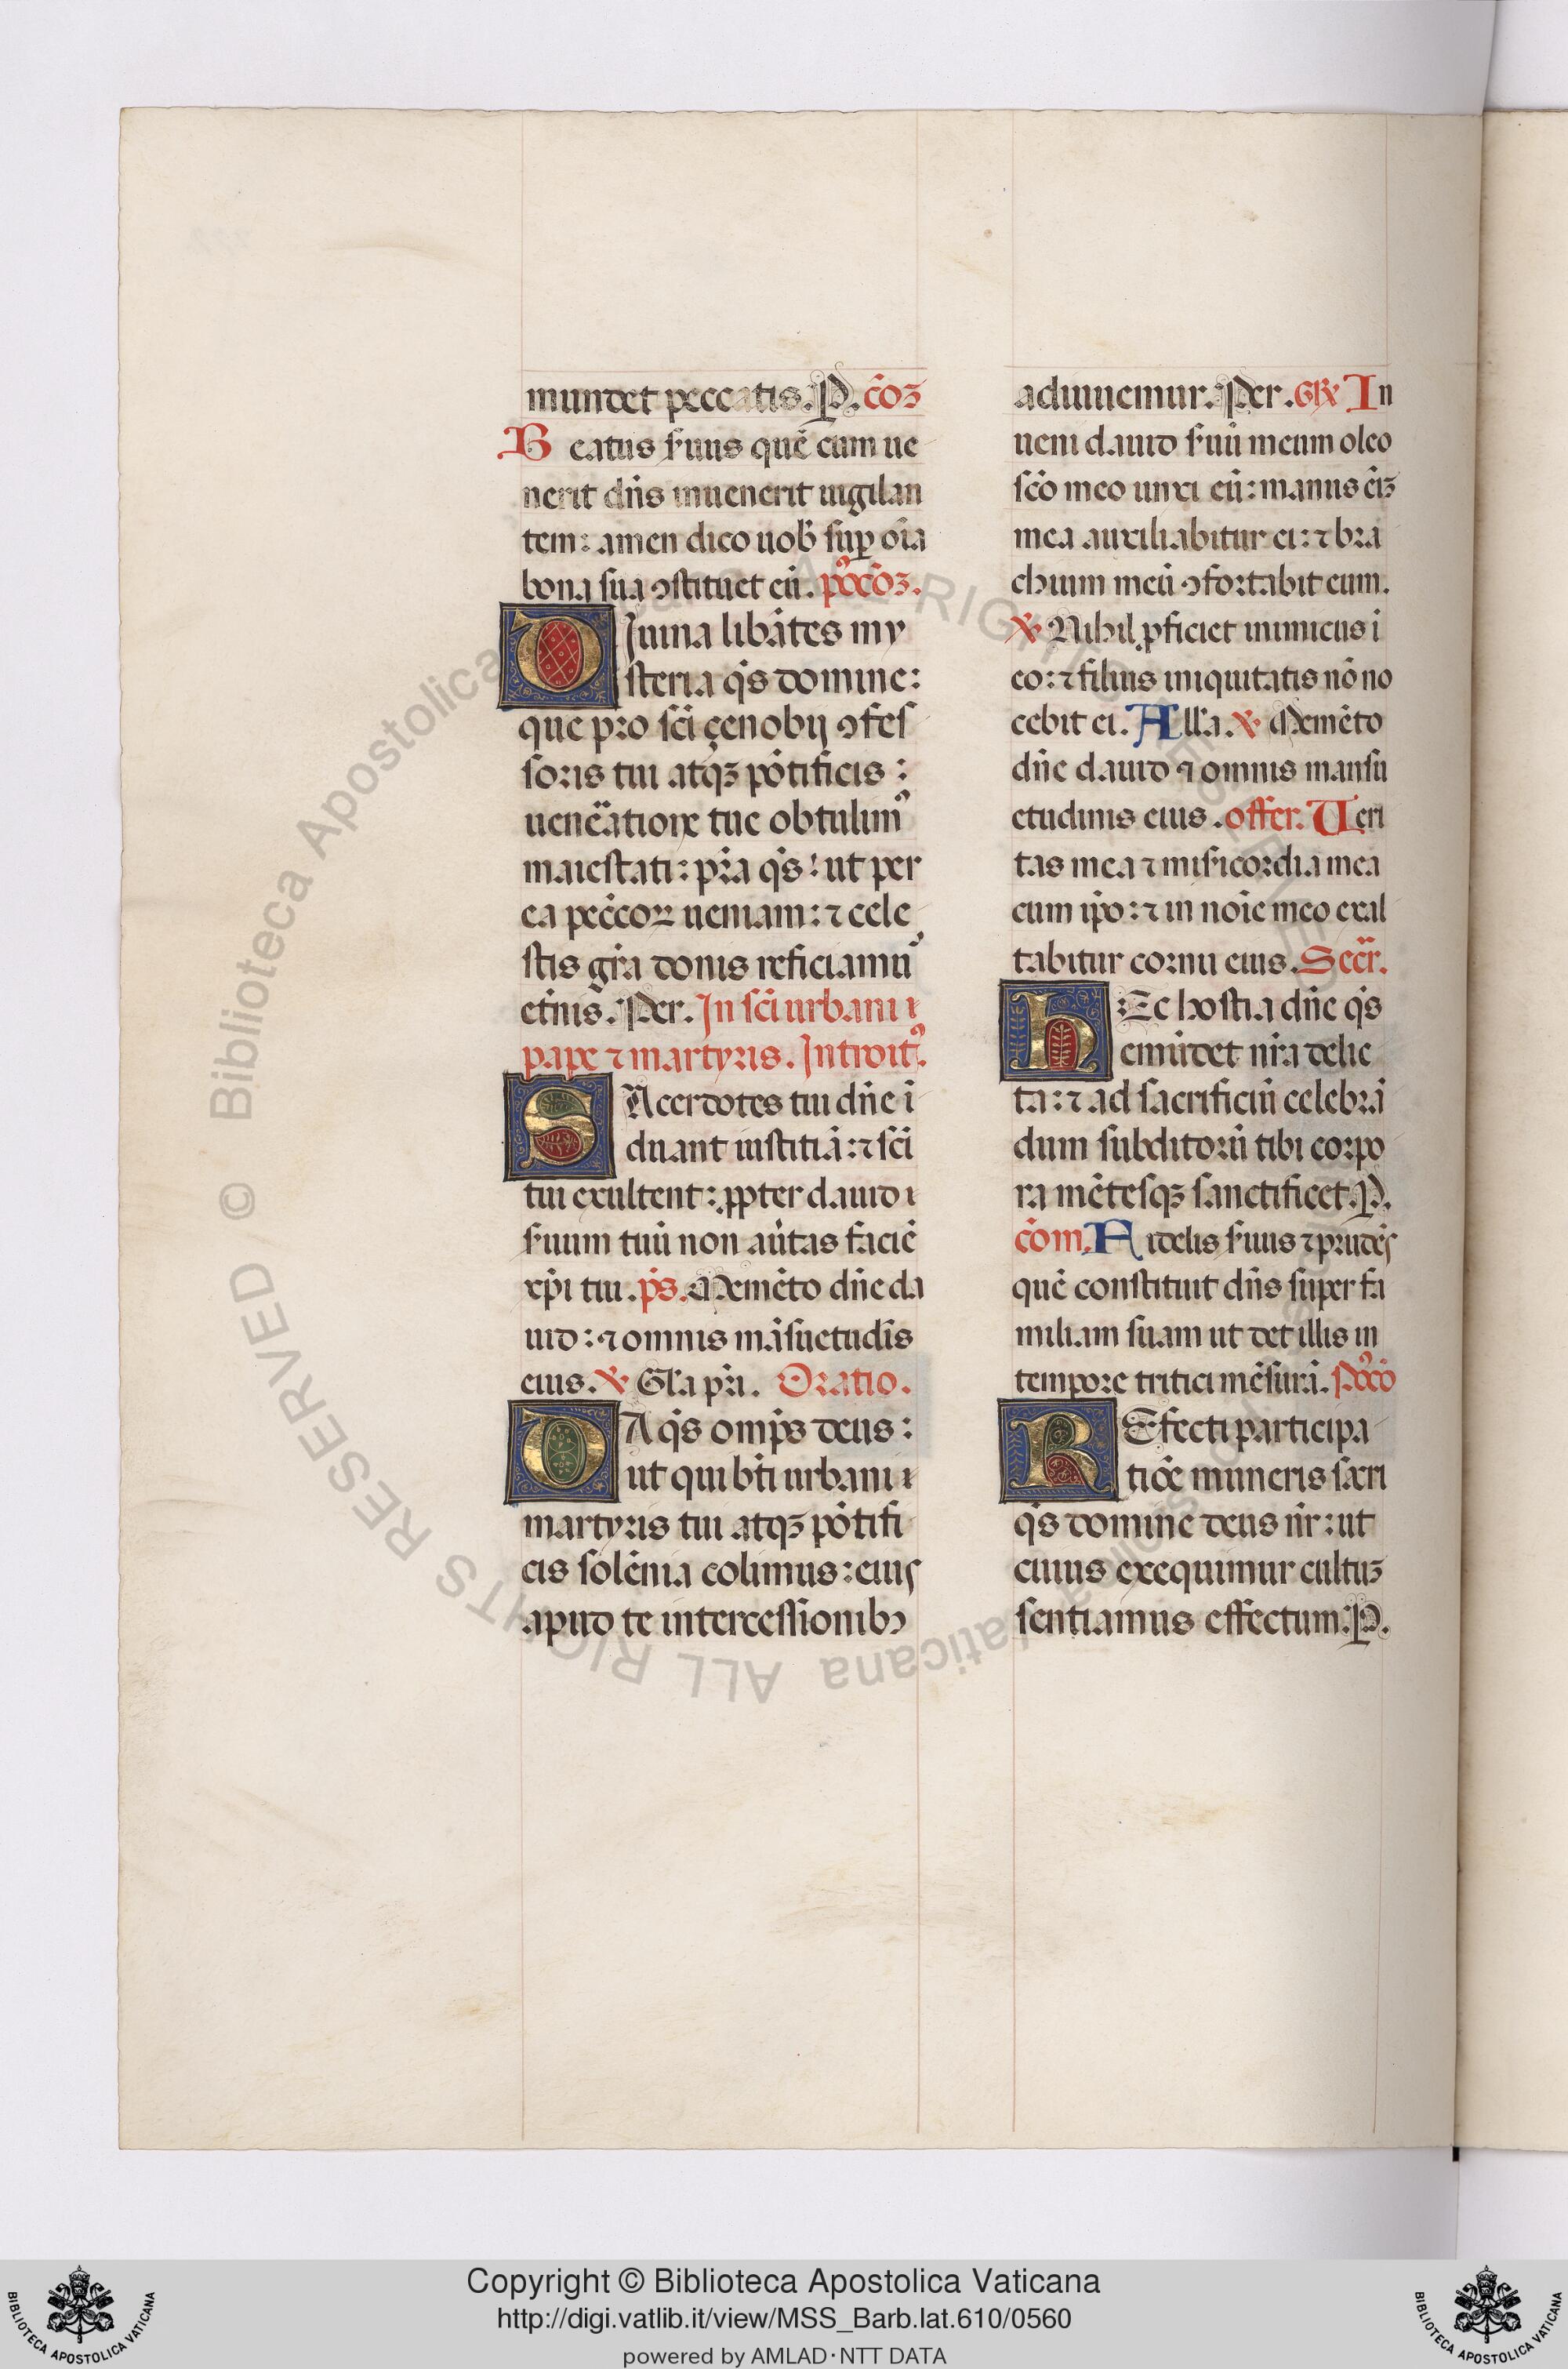 mundet peccatis. P. cōꝫ
Beatus ſuus quē cum ue
nerit dn̄s inuenerit uigilan
tem: amen dico uob̄ ſuꝑ oīa
bona ſua ꝯſtituet eū. poꝰcōꝫ.
DIuina libātes my
ſteria q̄s domine:
que pro ſc̄i çenobij ꝯfeſ
ſoris tui atqꝫ pōtificis:
uenēatione tue obtulimꝰ
maieſtati: pr̄a q̄s: ut per
ea pecc̄oꝝ ueniam: ⁊ cele
ſtis gr̄a donis reficiamuꝰ
et̄nis. Per. In ſc̄i urbani i
pape ⁊ martyris. Introitꝰ.
SAcerdotes tui dn̄e i
duant iuſtitiā: ⁊ ſc̄i
tui exultent: ꝓpter dauid i
ſuum tuū non au̅tas faciē
xp̄i tui. p̄s. Memēto dn̄e da
uid: ⁊ omnis māſuetudīs
eius. ℣ Gl̄a pr̄i. Oratio.
DA q̄s omp̄s deus:
ut qui bt̄i urbani i
martyris tui atqꝫ pōtifi
cis ſolēnia colimus: eiuſ
apud te interceſſionibꝰ
adiuuemur. Per. Gr̄ In
ueni dauid ſuū meum oleo
ſcō meo unxi eū: manus ēiꝫ
mea auxiliabitur ei: ⁊ bra
chium meū ꝯfortabit eum.
℣ Nihil ꝓficiet inimicus ī
eo: ⁊ filius iniquitatis nō no
cebit ei. All̄a. ℣ Memēto
dn̄e dauid ⁊ omnis manſu
etudinis eius. offer. Ueri
tas mea ⁊ miſicordia mea
cum ip̄o: ⁊ in noīe meo exal
tabitur cornu eius. Secr̄.
hEc hoſtia dn̄e q̄s
emūdet nr̄a delic
ta: ⁊ ad ſacrificiū celebrā
dum ſubditorū tibi corpo
ra mēteſqꝫ ſanctificet. P.
cōm. Fidelis ſuus ⁊ prudēſ
quē conſtituit dn̄s ſuper fa
miliam ſuam ut det illis in
tempore tritici mēſurā. Poꝰcō
REfecti participa
tiōe muneris ſacri
q̄s domine deus nr̄: ut
cuius exequimur cultuꝫ
ſentiamus effectum: P.
Copyright © Biblioteca Apostolica Vaticana
http://digi.vatlib.it/view/MSS_Barb.lat.610/0560
powered by AMLAD·NTT DATA